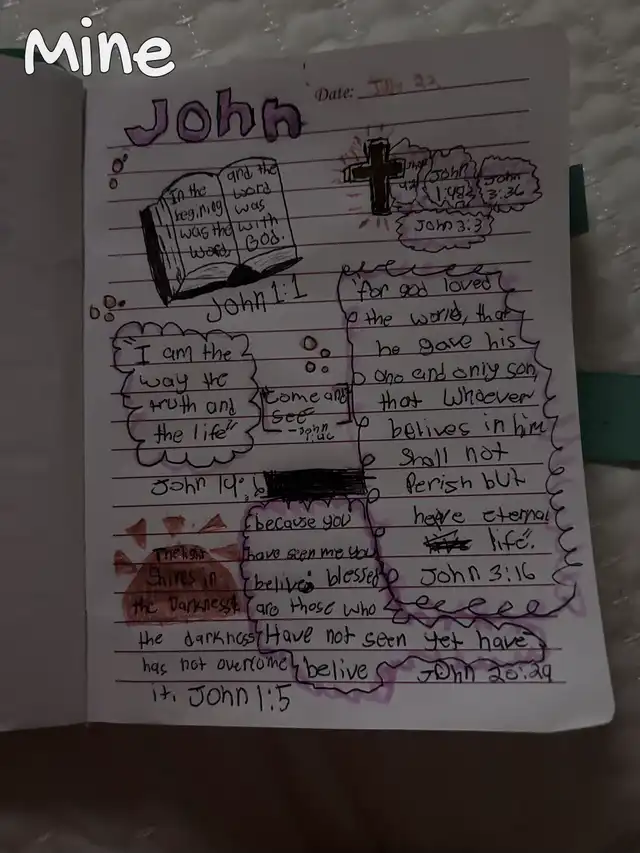 Mine
John
Date: July 22
In the
begining
was the
word
and the
word
was
with
God.
John 1:1
John
1:48
John
3:36
John 3:3
"I am the
way the
truth and
the life"
John 14:6
Come and
see
-John
"for god loved
the world, that
he gave his
one and only son,
that whoever
belives in him
shall not
Perish but
have eternal
life".
John 3:16
The light
Shines in
the Darkness
the darkness
has not overcome
it. John 1:5
because you
have seen me you
belive blessed
are those who
Have not seen yet have
belive
John 20:29